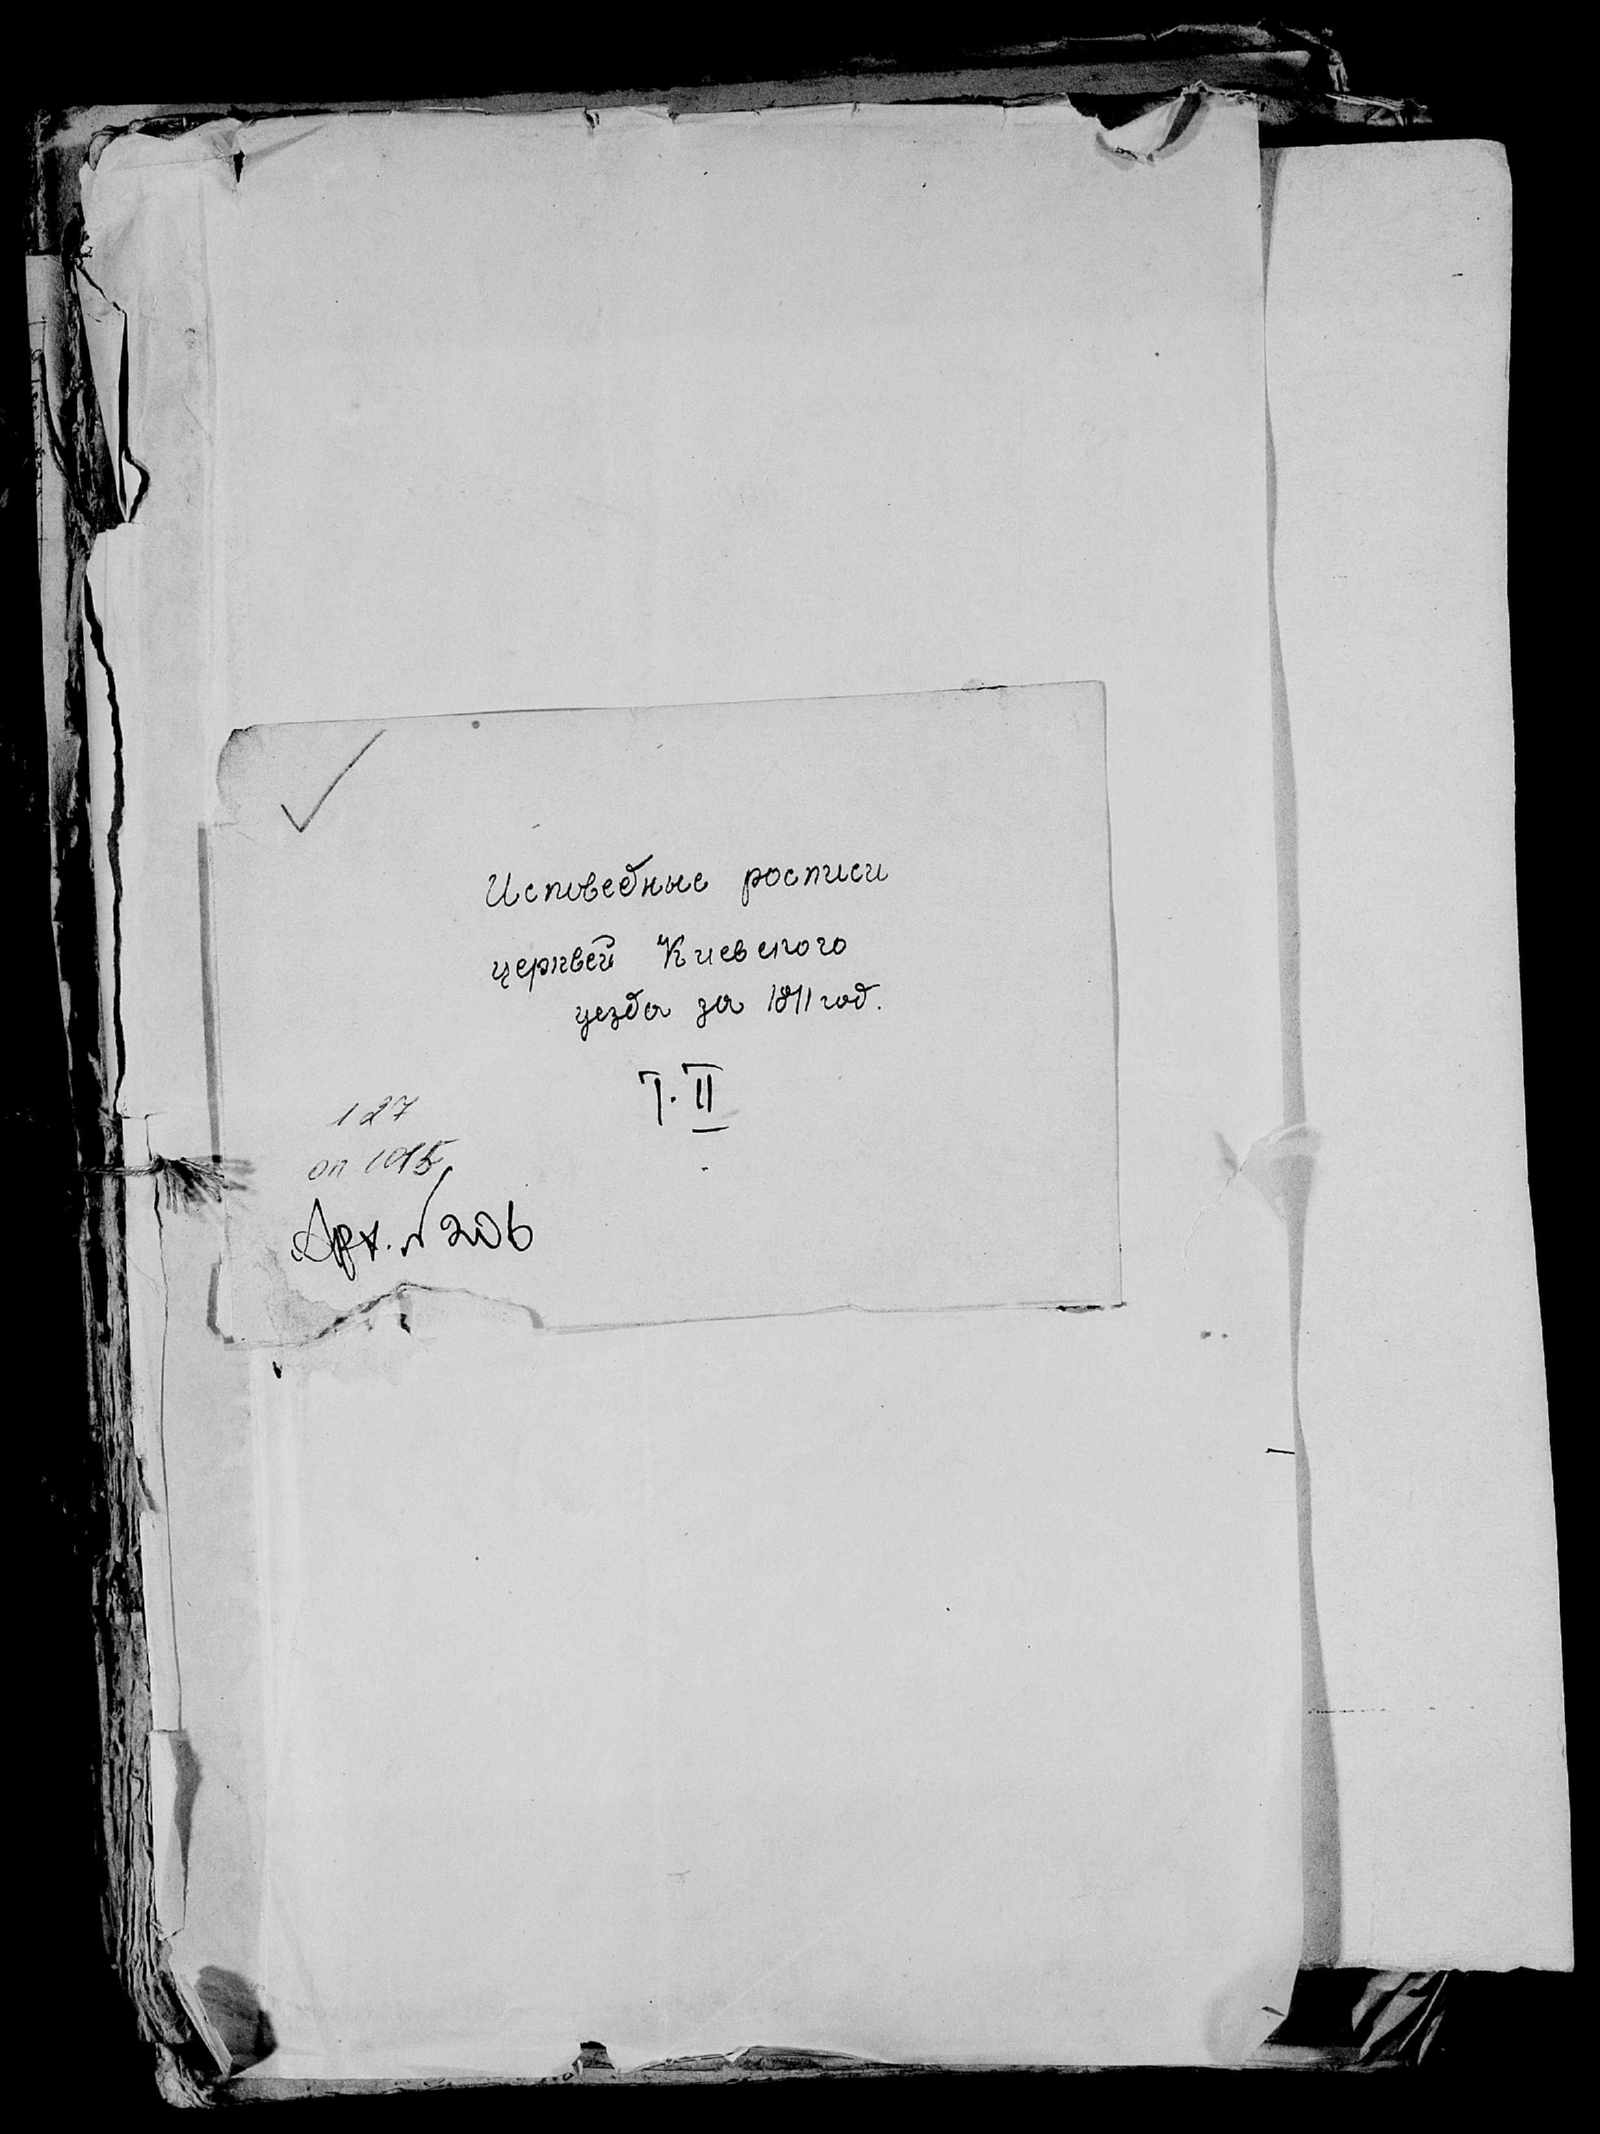 Исповедные росписи
церквей Киевского
уезда за 1811 год.
Т. II
127
оп 1015
Арх. № 206